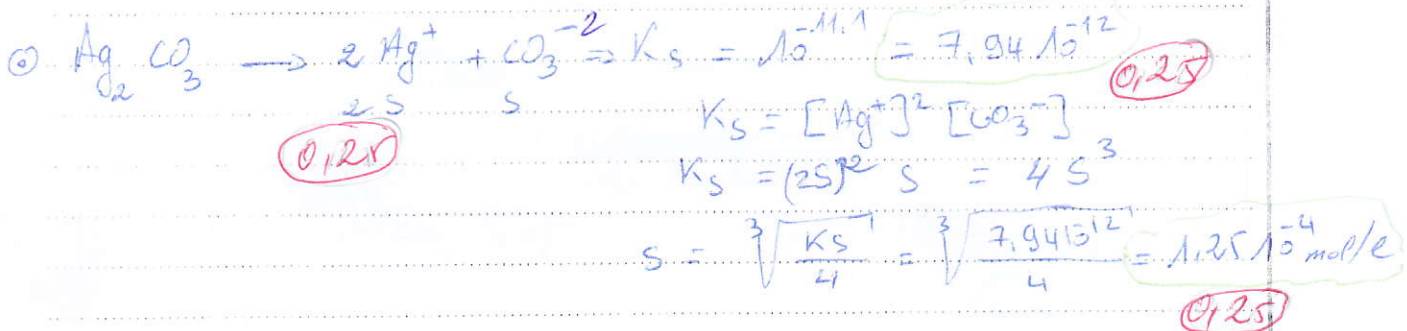 ⊙ Ag₂CO₃ → 2 Ag⁺ + CO₃⁻² ⇒ Ks = 10⁻¹¹·¹ = 7,94 10⁻¹²
2S S 0,25
Ks = [Ag⁺]² [CO₃⁻]
0,25
Ks = (2S)² S = 4 S³
S = ∛(Ks/4) = ∛(7,94 10⁻¹²/4) = 1,25 10⁻⁴ mol/l
0,25